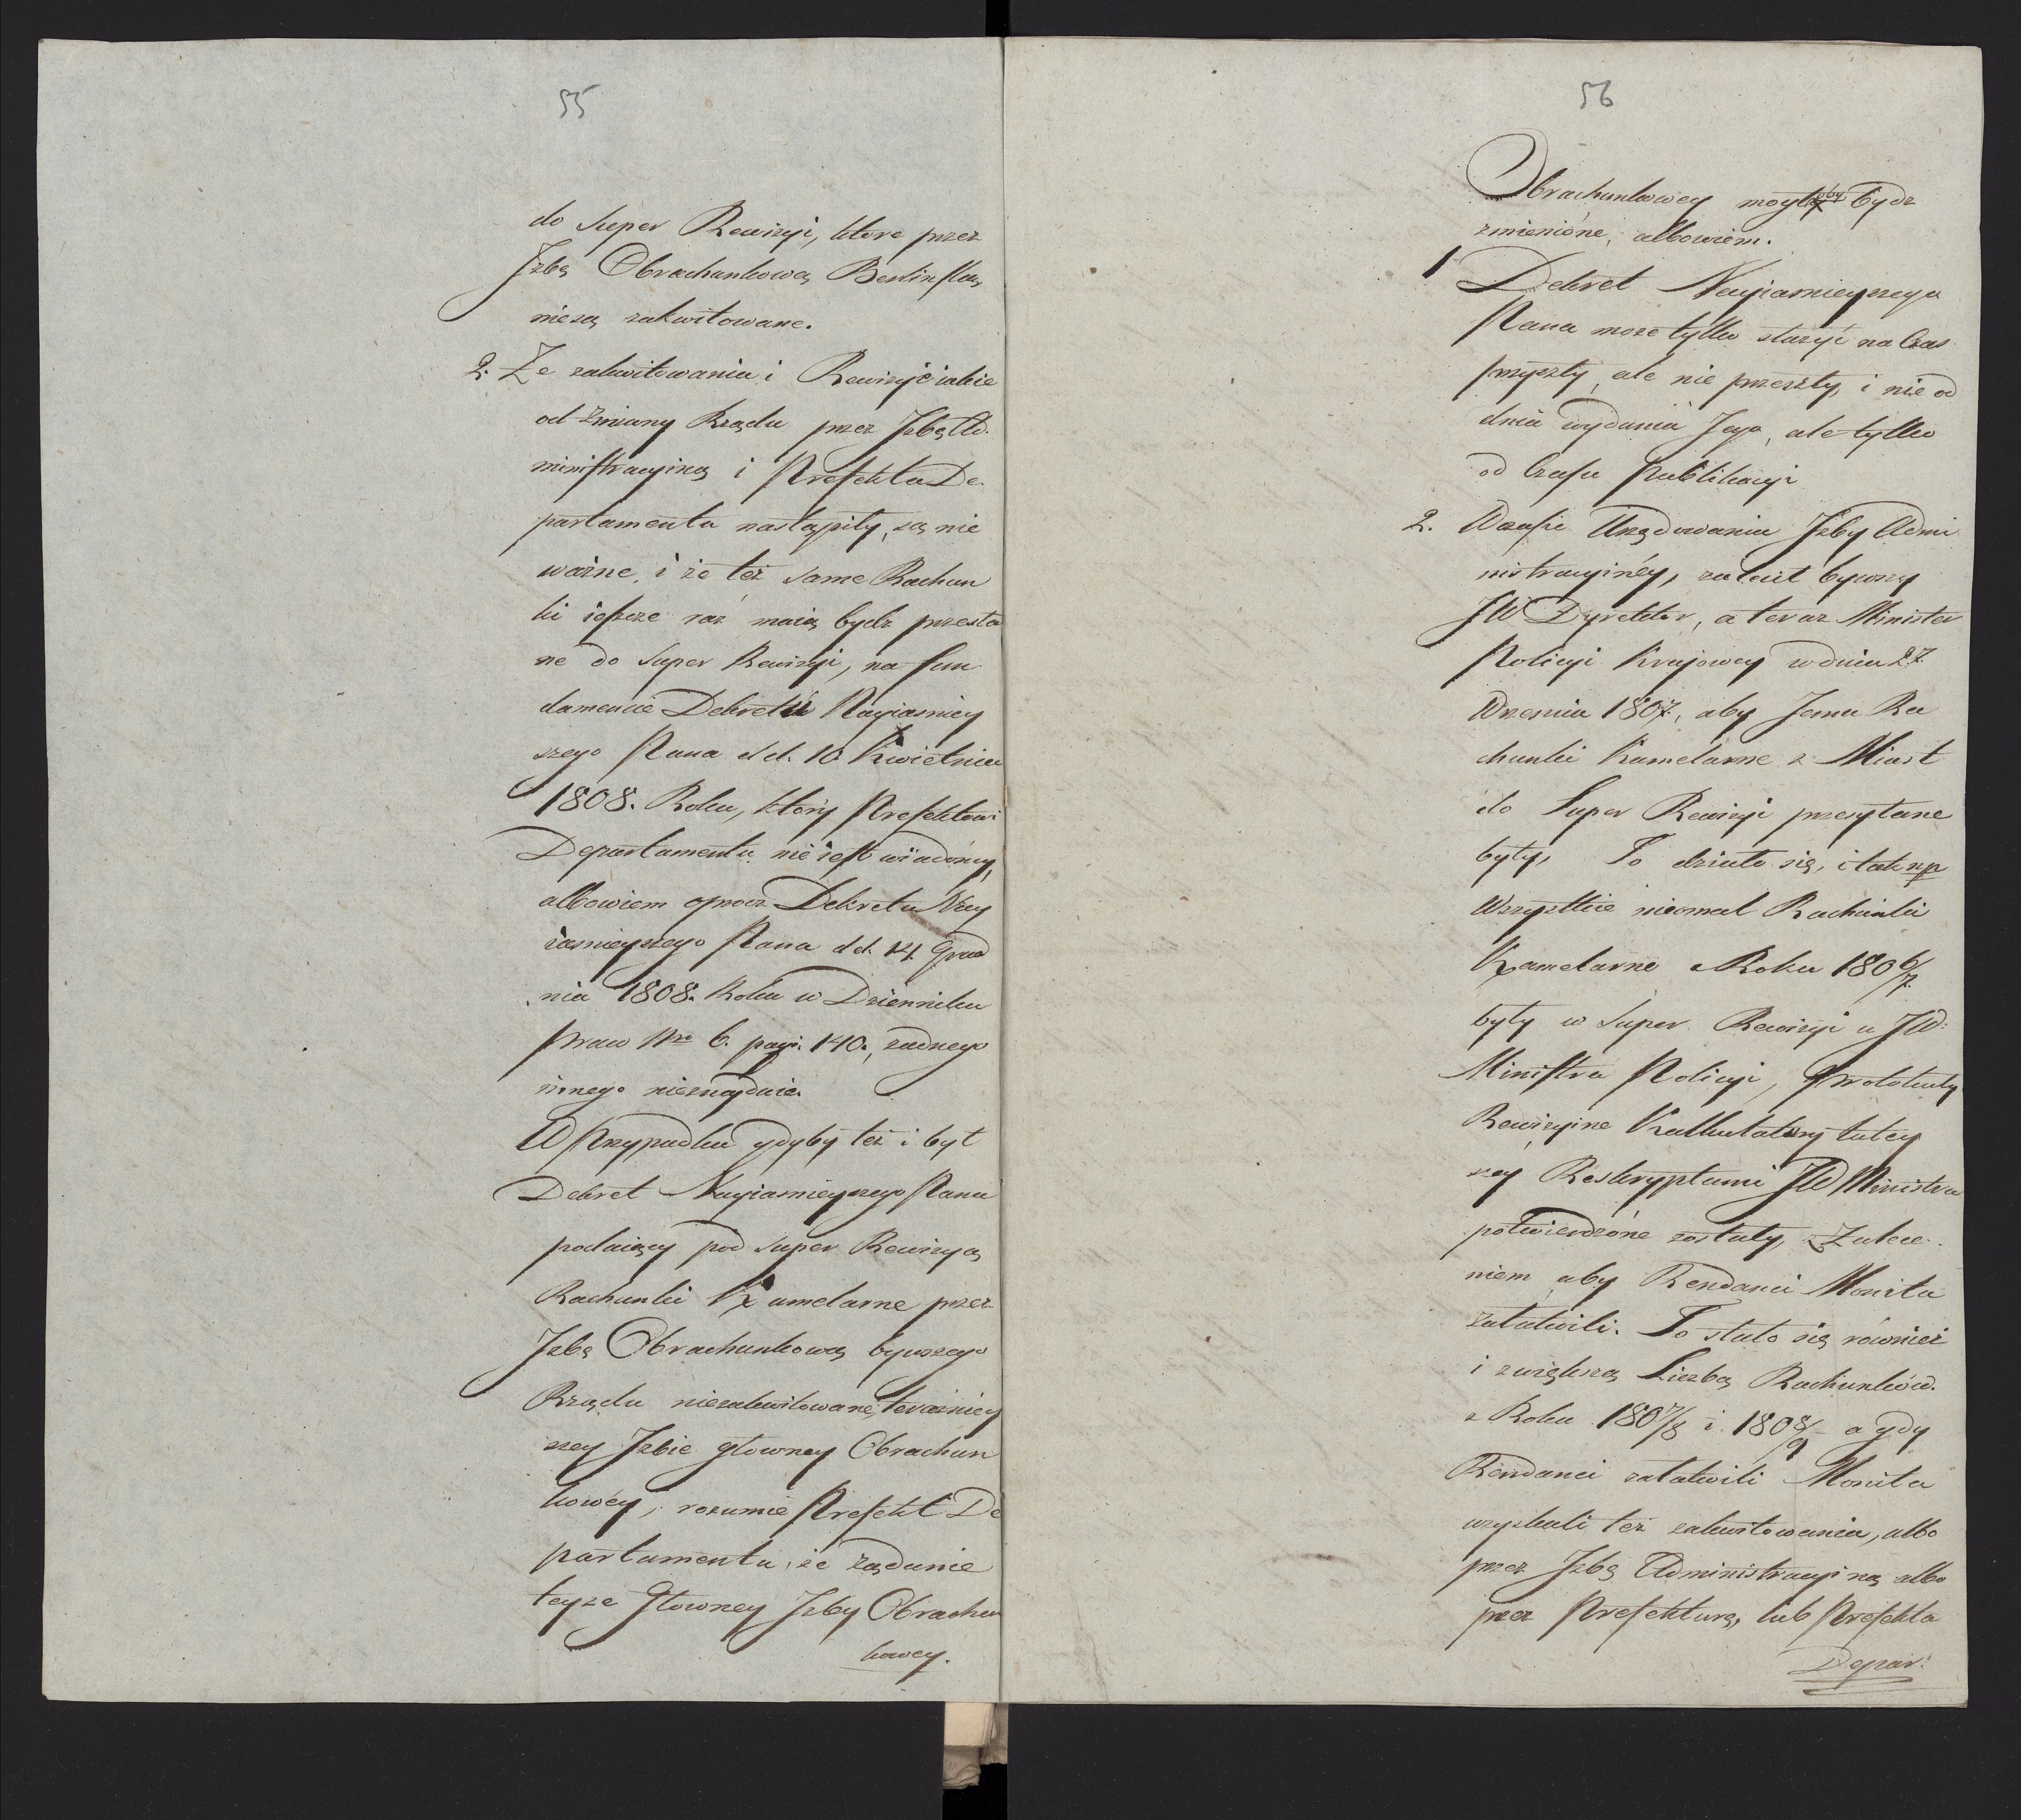 55
do Super Rewizyi, które przez
Jzbę Obrachunkową Berlinską
niesą zakwitowane.
2. Że zakwitowania i Rewizye iakie
od zmiany Rządu przez Jzbę Ad
ministracyiną i Prefekta De
partamentu nastąpiły, są nie
ważne, i że też same Rachun
ki ieszcze raz maią bydz przesła
ne do Super Rewizyi, na fun
damencie Dekretu Nayiasniey
szego Pana d d. 10. Kwietnia
1808. Roku, który Prefektowi
Departamentu nie iest wiadomy,
albowiem oprocz Dekretu Nay
iasnieyszego Pana d d. 14. Grud
nia 1808. Roku w Dzienniku
Praw Nro 6. pagi. 140., żadnego
innego nieznayduie.
W Przypadku gdyby też i był
Dekret Nayiasnieyszego Pana
poddaiący pod Super Rewizyą
Rachunki Kamelarne przez
Jzbę Obrachunkową bywszego
Rządu niezakwitowane, teraźniey
szey Jzbie głowney Obrachun
kowéy, rozumie Prefekt De
partamentu, że żądanie
teyze Głowney Jzby Obrachun
kowey.
56
Obrachunkowey mogłyby bydz
zmienióne, albowiem.
1 Dekret Nayiasnieyszego
Pana może tylko służyć na Czas
przyszły, ale nie przeszły, i nie od
dnia wydania Jego, ale tylko
od Czasu Publikacyi
2. Wczasie Urzędowania Jzby Admi
nistracyinéy, zalecił bywszy
JW Dyrektor, a teraz Minister
Policyi Krajowey w dniu 27.
Września 1807., aby Jemu Ra
chunki Kamelarne z Miast
do Super Rewizyi przesyłane
były, To działo się, i tak np
Wszystkie niemal Rachunki
Kamelarne z Roku 1806/7.
były w Super Rewizyi u JW.
Ministra Policyi, Protokuły
Rewizyine Kalkulatury tutey
széy Reskryptami JW Ministra
potwierdzóne zostały, z Zalece
niem aby Rendanci Monita
załatwili. To stało się również
i zwiększą Liczbą Rachunków.
z Roku 1807/8 i 1808/9 a gdy
Rendanci załatwili Monita
uzyskali też zakwitowania, albo
przez Jzbę Administracyiną albo
przez Prefekturę, lub Prefekta
Depar: